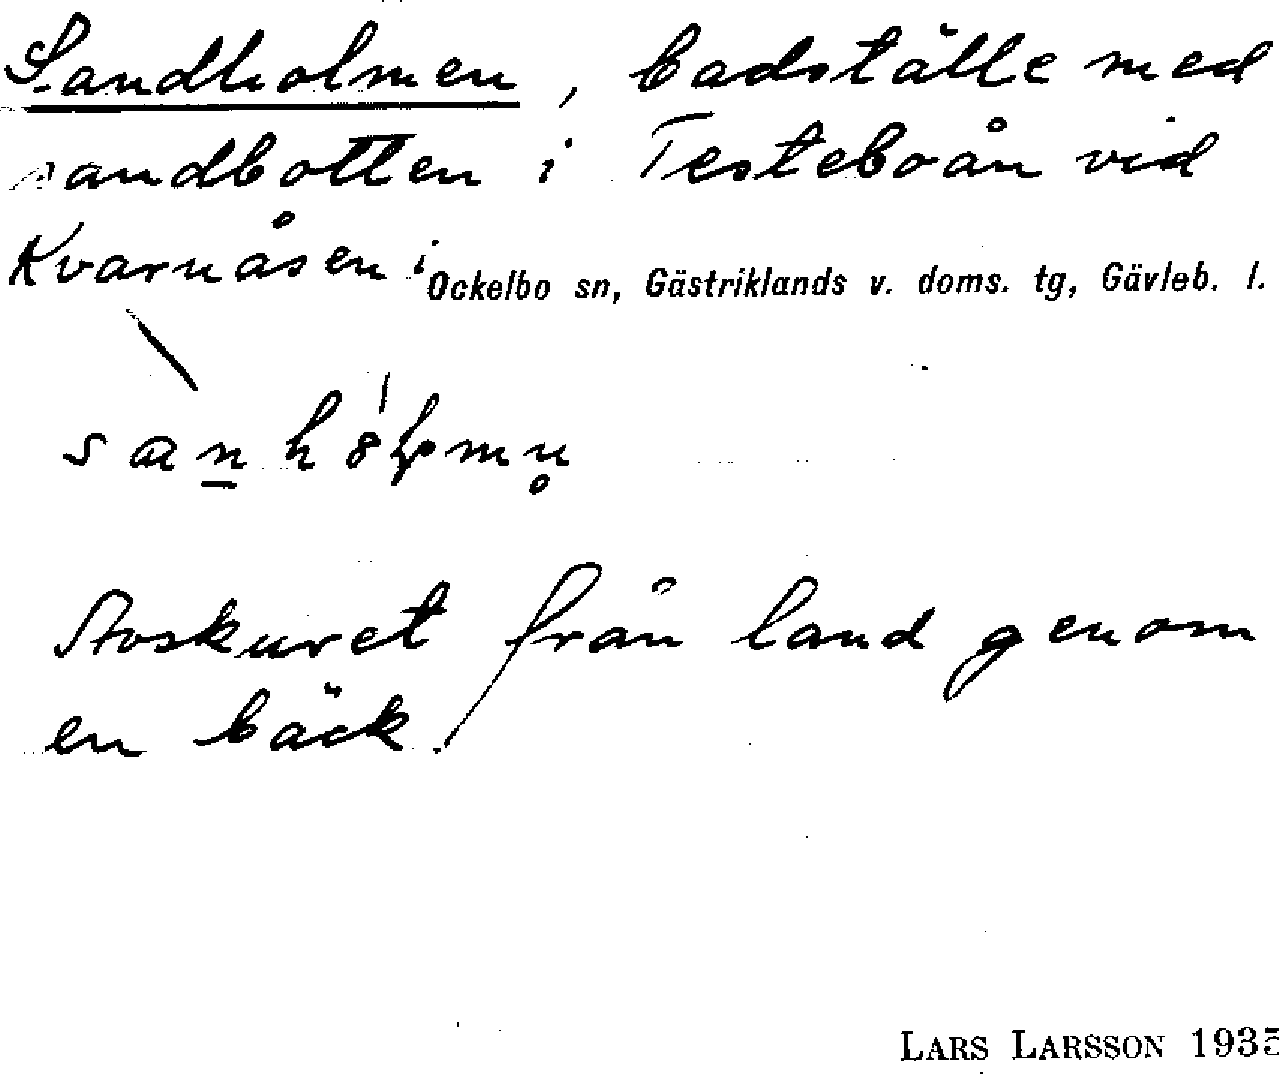 Sandholmen, badställe med
sandbotten i Testeboån vid
Kvarnåsen i Ockelbo sn, Gästriklands v. doms. tg, Gävleb. l.
Avskuret från land genom
en bäck.
LARS LARSSON 1935